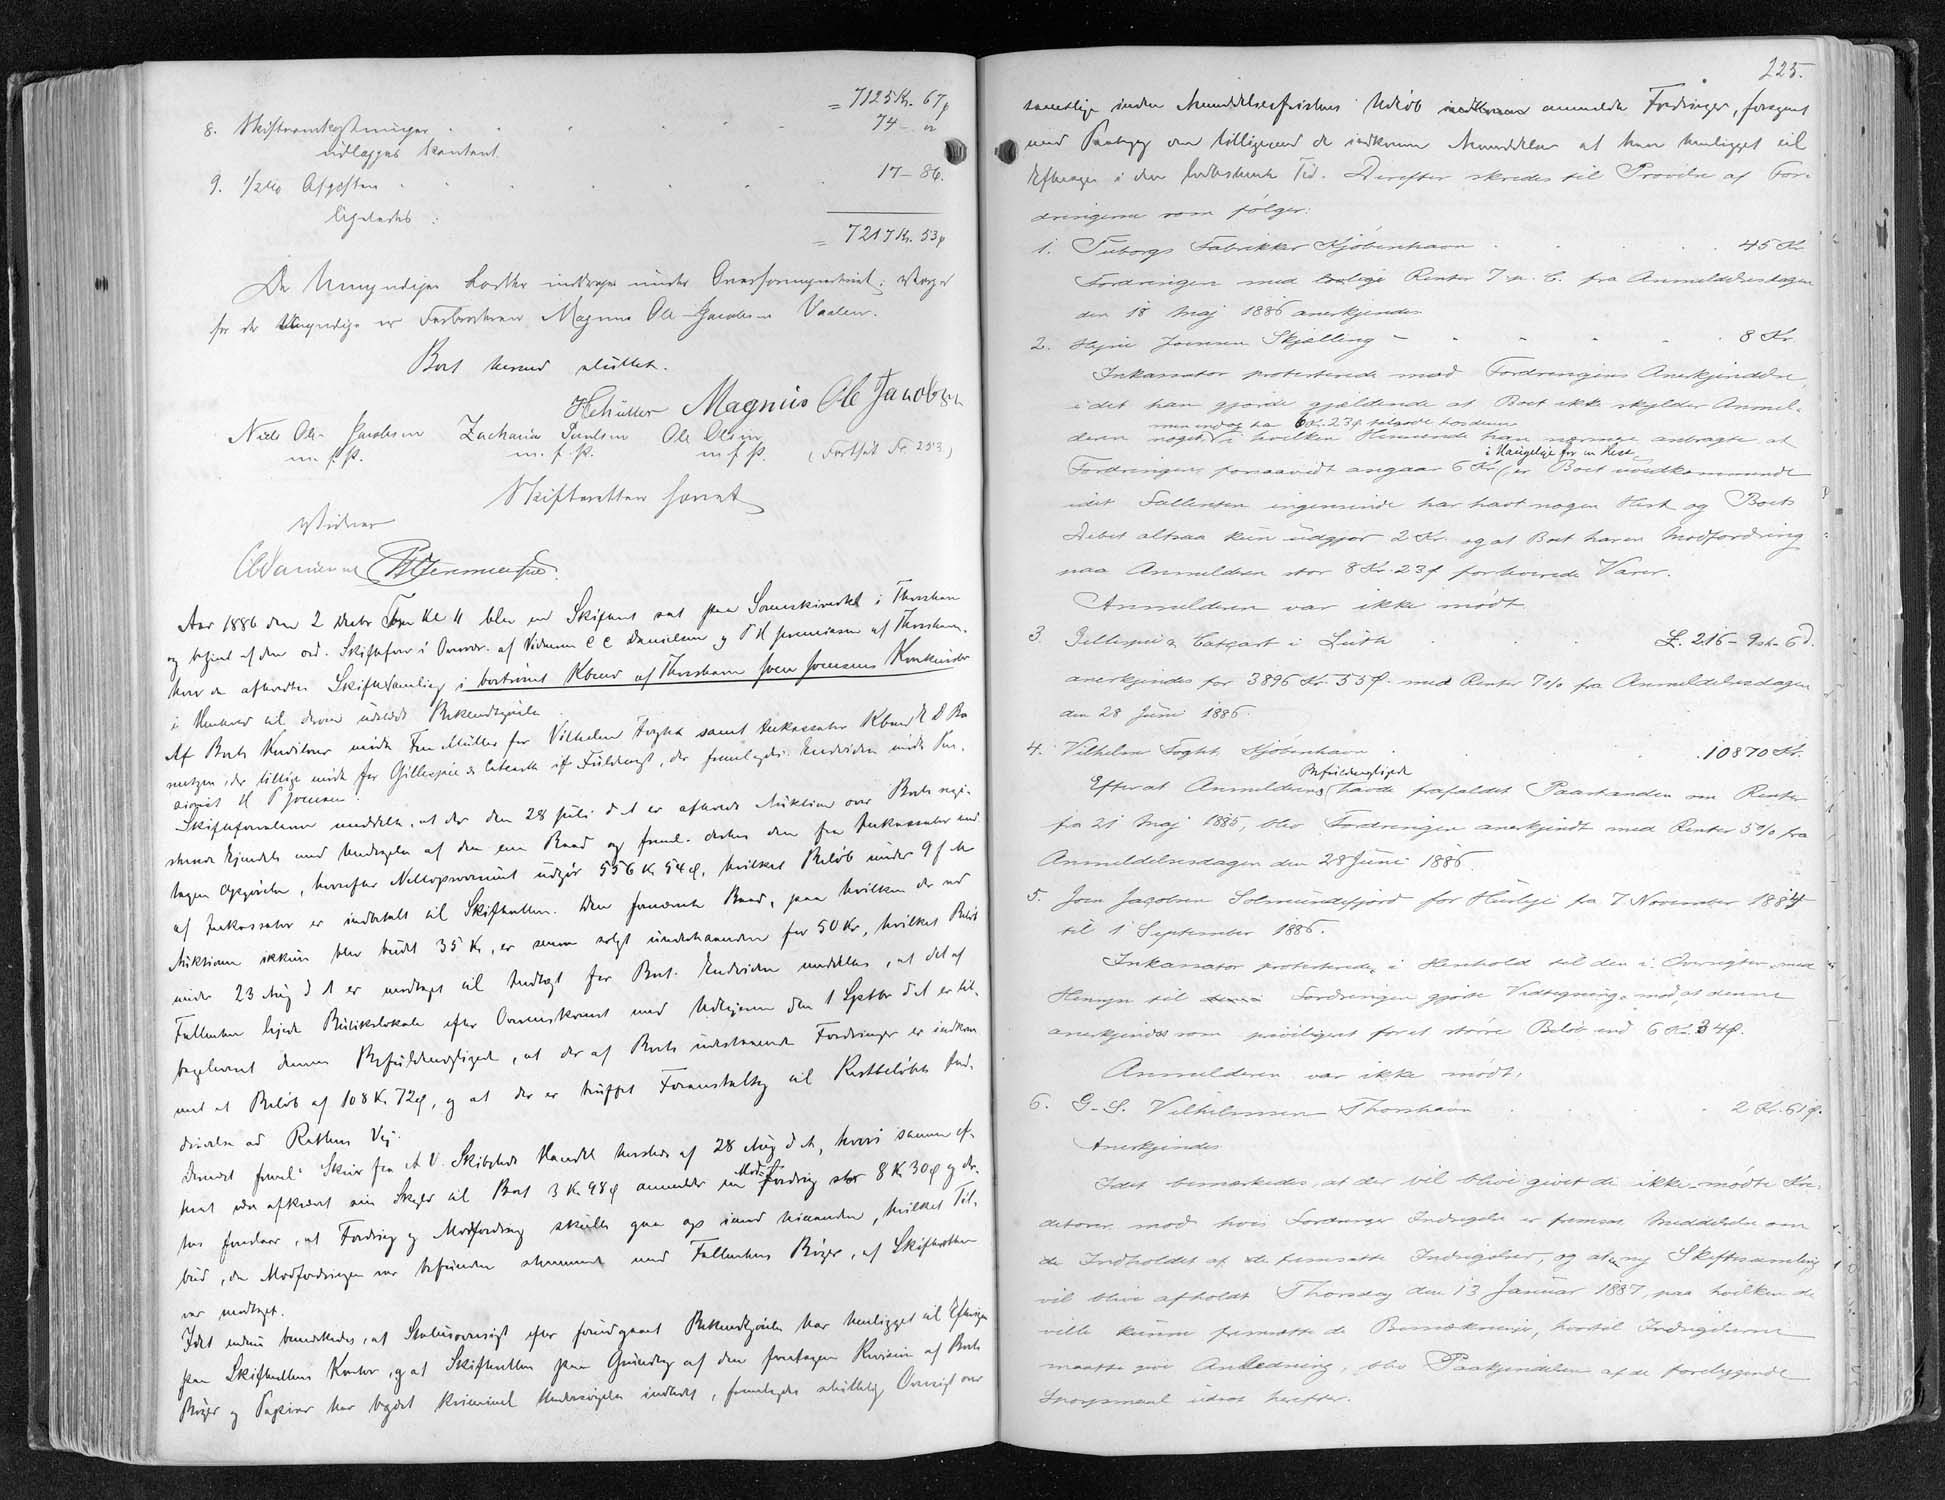 = 7125 Kr. 67 ø
8. Skifteomkostninger . . . . . 74 - "
udlægges kontant
9. 1/2 % Afgiften . . . . . 17 - 86.
ligeledes :
= 7217 Kr. 53 ø
De Umyndiges Lodder inddrages under Overformynderiet; Værge
for de Umyndige er Farbroderen Magnus Ole Jacobsen Vaalen.
Boet herved sluttet.
HMüller Magnus Ole Jacobsen
Niels Ole Jacobsen Zacharia Poulsen Ole Olsen
m. f. P. m. f. P. m f P. (Fortsat Fr. 253.)
Skifteretten hævet
Vidner
CDanielsen
Aar 1886 den 2 Decbr Form Kl 11 blev en Skifteret sat paa Sorenskriveriet i Thorshavn
og betjent af den ord. Skifteforv. i Overvær. af Vidnerne C C Danielsen og P H Jenniessen af Thorshavn.
hvor da afholdtes Skiftesamling i bortrømt Kbmd af Thorshavn Joen Joensens Konkursbo
i Henhold til derom udstedt Bekendtgjørelse
Af Boets Kreditorer mødte Frm Müller for Vilhelm Foght samt Inkassator Kbmd E D Ba
rentzen, der tillige mødte for Gillespie & Catcart if Fuldmagt, der fremlagdes. Endvidere mødte Pen-
sionist H P Joensen.
Skifteforvalteren meddelte, at der den 28 Juli d A er afholdt Auktion over Boets regi-
strerede Ejendele med Undtagelse af den ene Baad og freml. derhos den fra Inkassator mod
tagen Opgjørelse, hvorefter Nettoprovenuet udgjør 556 Kr 54 ø, hvilket Beløb under 9 f M
af Inkassator er indbetalt til Skifteretten. Den fornævnte Baad, paa hvilken der ved
Auktionen ikkun blev budt 35 Kr, er senere solgt underhaanden for 50 Kr, hvilket Beløb
under 23 Aug d A er modtaget til Indtægt for Boet. Endvidere meddeltes, at det af
Fallenten lejede Butikslokale efter Overenskomst med Udlejeren den 1 Septbr d A er til-
bageleveret dennes Befuldmægtigede, at der af Boets udestaaende Fordringer er indkom
met et Beløb af 108 Kr 72 ø, og at der er truffet Foranstaltng til Restbeløbets Ind-
drivelse ad Rettens Vej.
Dernæst freml. Skriv fra A V. Skibsteds Handel hersteds af 28 Aug d A, hvori samme ef-
terat være afkrævet sin Skyld til Boet 3 Kr 98 ø anmelder en Mod-fordring stor 8 Kr 30 ø og der-
hos foreslaar, at Fordring og Modfordring skulle gaa op imod hinanden, hvilket Til-
bud, da Modfordringen var befunden stemmende med Fallentens Bøger, af Skifteretten
var modtaget.
Idet endnu bemærkedes, at Statusoversigt efter forudgaaet Bekendtgjørelse har henligget til Eftersyn
paa Skifterettens Kontor, og at Skifteretten paa Grundlag af den foretagne Revision af Boets
Bøger og Papirer har begært kriminel Undersøgelse indledt, fremlagdes sluttelig Oversigt over
225.
samtlige inden Anmeldelsesfristens Udløb anmeldte Fordringer, forsynet
med Paategng om tilligemed de indkomne Anmeldelser at have henligget til
Eftersyn i den lovbestemte Tid. Derefter skredes til Prøvelse af For-
dringerne som følger:
1. Tuborgs Fabrikker Kjøbenhavn . . . . 45 Kr
Fordringen med lovlige Renter 7 p. C. fra Anmeldelsesdagen
den 18 Maj 1886 anerkjendes.
2. Hejne Joensen Skjælling - . . . . 8 Kr.
Inkassator protesterede mod Fordringens Anerkjendelse,
idet han gjorde gjældende at Boet ikke skylder Anmel-
men endog har 6 Kr. 23 ø tilgode hos denne
deren noget, i hvilken Henseende han nærmere anbragte at
i Haugeleje for en Hest
Fordringen forsaavidt angaar 6 Kr. (er Boet uvedkommende
idet Fallenten ingensinde har havt nogen Hest og Boets
Debet altsaa kun udgjør 2 Kr. og at Boet har en Modfordring
paa Anmelderen stor 8 Kr. 23 ø for leverede Varer.
Anmelderen var ikke mødt.
3. Gillespie & Catcart i Leith . . . £. 216 - 9 sh - 6 d.
anerkjendes for 3896 Kr. 55 ø. med Renter 7 o/o fra Anmeldelsesdagen
den 28 Juni 1886.
4. Vilhelm Foght Kjøbenhavn . . . 10870 Kr.
Befuldmægtigede
Efterat Anmelderens (havde frafaldet Paastanden om Renter
fra 21 Maj 1885, blev Fordringen anerkjendt med Renter 5 o/o fra
Anmeldelsesdagen den 28 Juni 1886.
5. Joen Jacobsen Solmundefjord for Husleje fra 7. November 1884
til 1 September 1886.
Inkassator protesterede, i Henhold til den i Oversigten med
Hensyn til Fordringen gjorte Vedtegning mod at denne
anerkjendes som privilegeret for et større Beløb end 6 Kr. 34 ø.
Anmelderen var ikke mødt.
6. G. S. Vilhelmsen Thorshavn . . . . 2 Kr. 61 ø.
Anerkjendes.
Idet bemærkedes, at der vil blive givet de ikke mødte Kre-
ditorer mod hvis Fordringer Indsigelse er fremsat Meddelelse om
Indholdet af de fremsatte Indsigelser, og at en ny Skiftesamling
vil blive afholdt Thorsdag den 13 Januar 1887, paa hvilken de
ville kunne fremsætte de Bemærkninger, hvortil Indsigelserne
maatte give Anledning, blev Paakjendelsen af de foreliggende
Spørgsmaal udsat herefter.